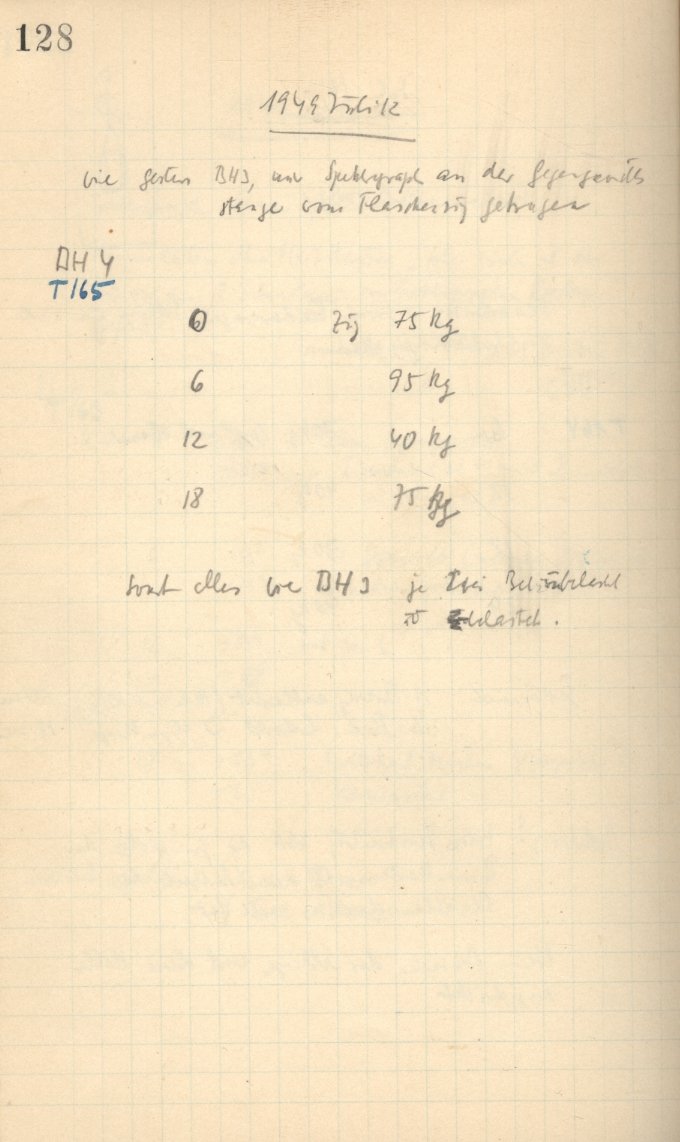 128
1949 Juli 12
wie gestern BH3, nur Spektrograph an der Gegengewichts
stange vom Flaschenzug getragen
BH 4
T 165
0 Zug 75 kg
6 95 kg
12 40 kg
18 75 kg
Sonst alles wie BH 3 je